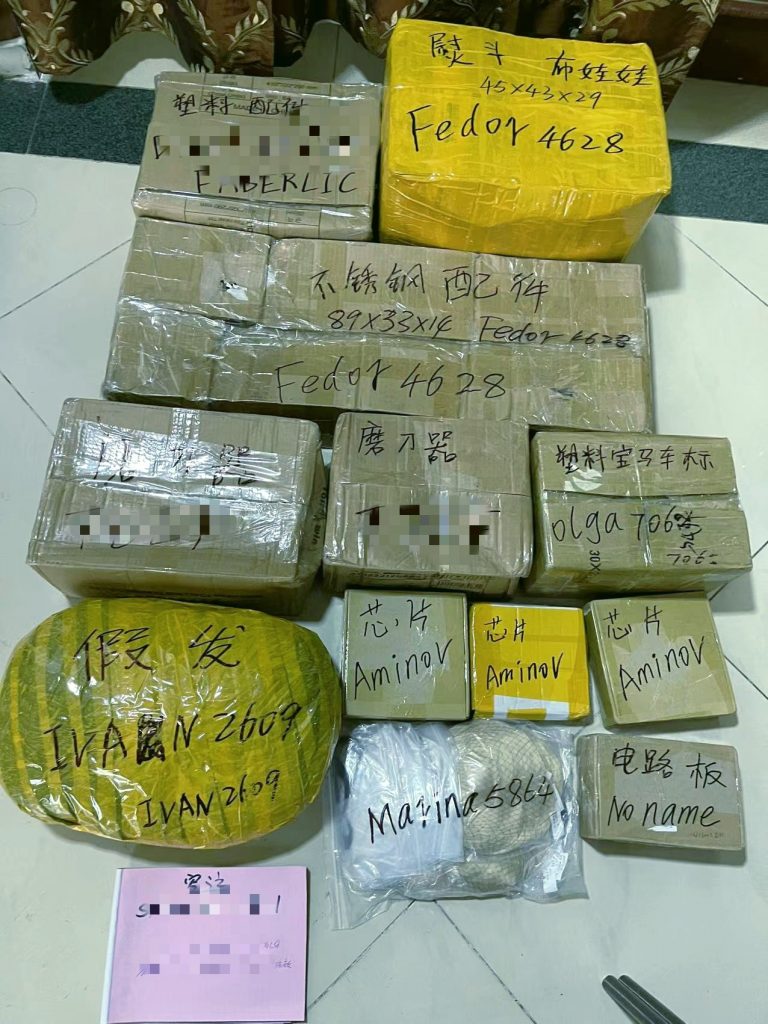 熨斗 布娃娃
45×43×29
Fedor 4628
塑料 配件
FABERLIC
不锈钢 配件
89×33×14 Fedor 4628
Fedor 4628
器
磨刀器
塑料宝马车标
olga 706
假发
IVAN 2609
IVAN 2609
芯片
Aminov
芯片
Aminov
芯片
Aminov
Marina 5864
电路板
No name